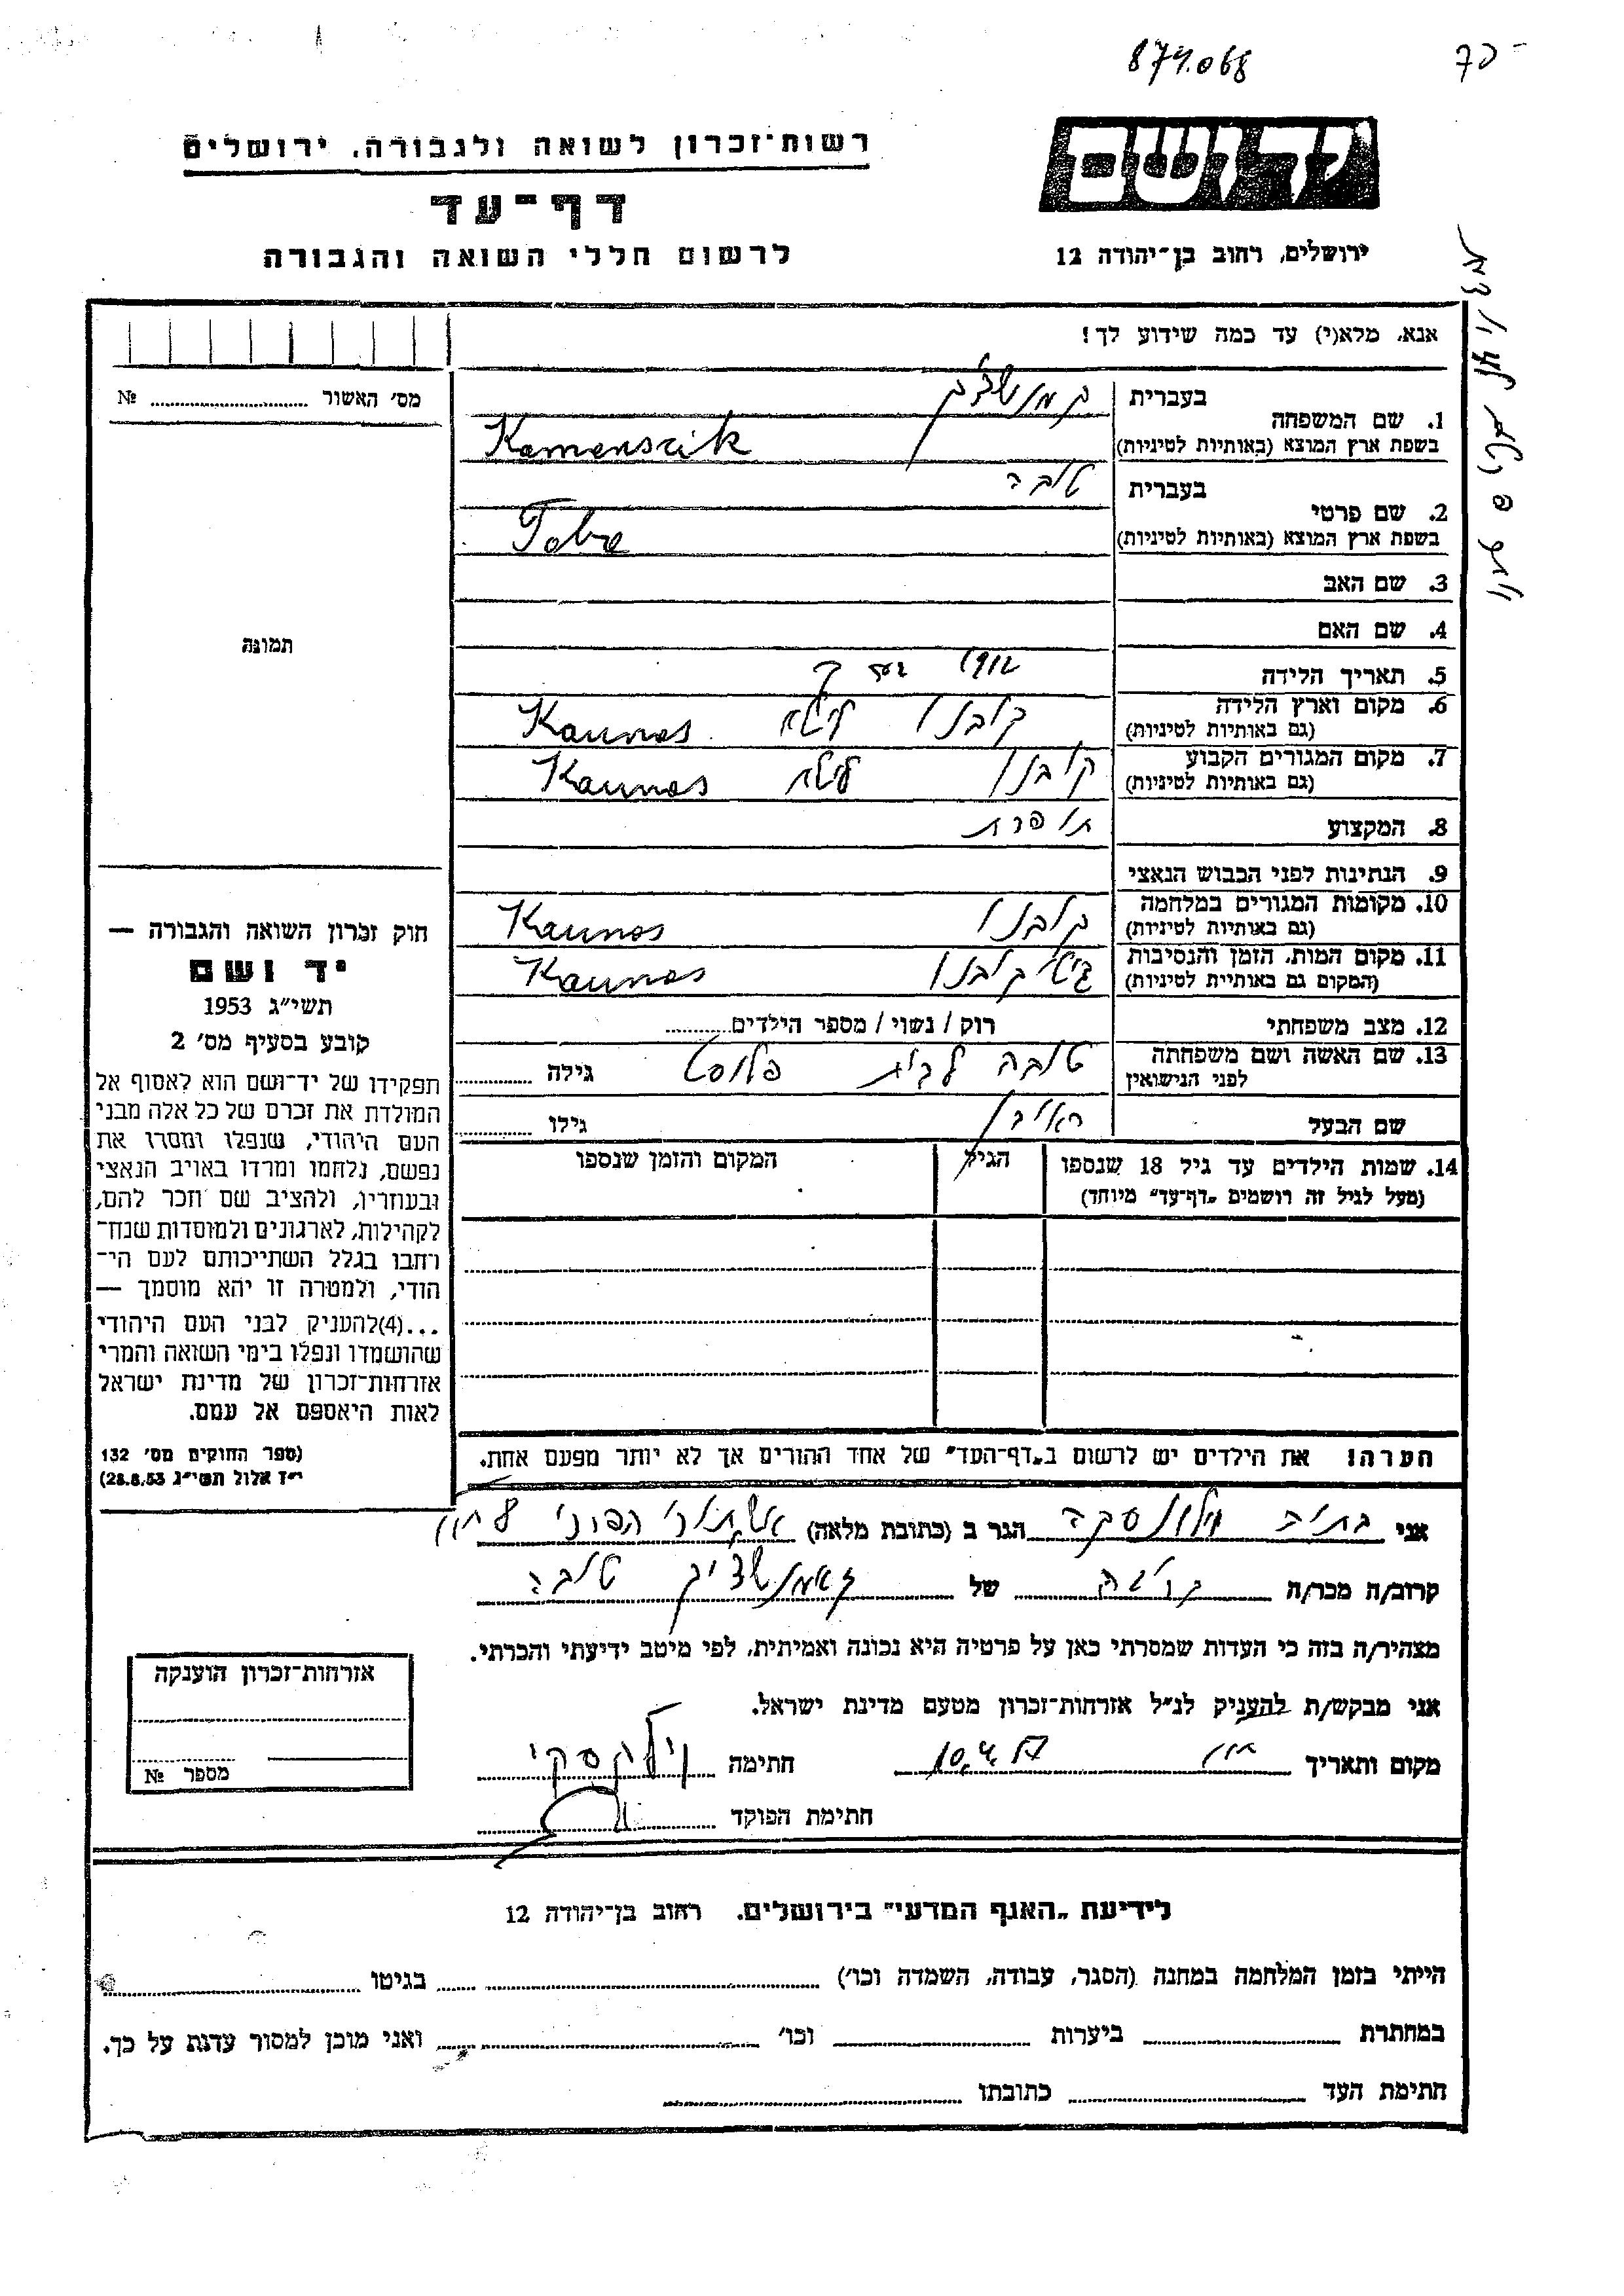 874.068
רשות־זכרון לשואה ולגבורה, ירושלים
דף־עד
לרשום חללי השואה והגבורה
ירושלים, רחוב בן־יהודה 12
אנא, מלא(י) עד כמה שידוע לך!
מס' האשור № 
1. שם המשפחה
בעברית
בשפת ארץ המוצא (באותיות לטיניות) Kamenszik
2. שם פרטי
בעברית טובה
בשפת ארץ המוצא (באותיות לטיניות) Tobe
3. שם האב
4. שם האם
5. תאריך הלידה
6. מקום וארץ הלידה קובנו ליטא Kaunas
(גם באותיות לטיניות)
7. מקום המגורים הקבוע קובנו ליטא Kaunas
(גם באותיות לטיניות)
8. המקצוע תופרת
9. הנתינות לפני הכבוש הנאצי
10. מקומות המגורים במלחמה קובנו Kaunas
(גם באותיות לטיניות)
11. מקום המות, הזמן והנסיבות גיטו קובנו Kaunas
(המקום גם באותיית לטיניות)
12. מצב משפחתי רוק / נשוי / מספר הילדים
13. שם האשה ושם משפחתה טובה לבית גילה
לפני הנישואין
שם הבעל ראובן גילו
14. שמות הילדים עד גיל 18 שנספו הגיל המקום והזמן שנספו
(מעל לגיל זה רושמים „דף־עד" מיוחד)
הערה! את הילדים יש לרשום ב„דף־העד" של אחד ההורים אך לא יותר מפעם אחת.
תמונה
חוק זכרון השואה והגבורה —
יד ושם
תשי"ג 1953
קובע בסעיף מס' 2
תפקידו של יד־ושם הוא לאסוף אל
המולדת את זכרם של כל אלה מבני
העם היהודי, שנפלו ומסרו את
נפשם, נלחמו ומרדו באויב הנאצי
ובעוזריו, ולהציב שם וזכר להם,
לקהילות, לארגונים ולמוסדות שנח־
רחבו בגלל השתייכותם לעם הי־
הודי, ולמטרה זו יהא מוסמך —
...(4)להעניק לבני העם היהודי
שהושמדו ונפלו בימי השואה והמרי
אזרחות־זכרון של מדינת ישראל
לאות היאספם אל עמם.
(ספר החוקים מס' 132
י"ז אלול תשי"ג 28.8.53)
אני הגר ב (כתובת מלאה)
קרוב/ה מכר/ה של טובה
מצהיר/ה בזה כי העדות שמסרתי כאן על פרטיה היא נכונה ואמיתית, לפי מיטב ידיעתי והכרתי.
אני מבקש/ת להעניק לנ"ל אזרחות־זכרון מטעם מדינת ישראל.
מקום ותאריך חתימה
חתימת הפוקד
אזרחות־זכרון הוענקה
מספר №
לידיעת „האגף המדעי" בירושלים. רחוב בן־יהודה 12
הייתי בזמן המלחמה במחנה (הסגר, עבודה, השמדה וכו') בגיטו
במחתרת ביערות וכו' ואני מוכן למסור עדות על כך.
חתימת העד כתובתו